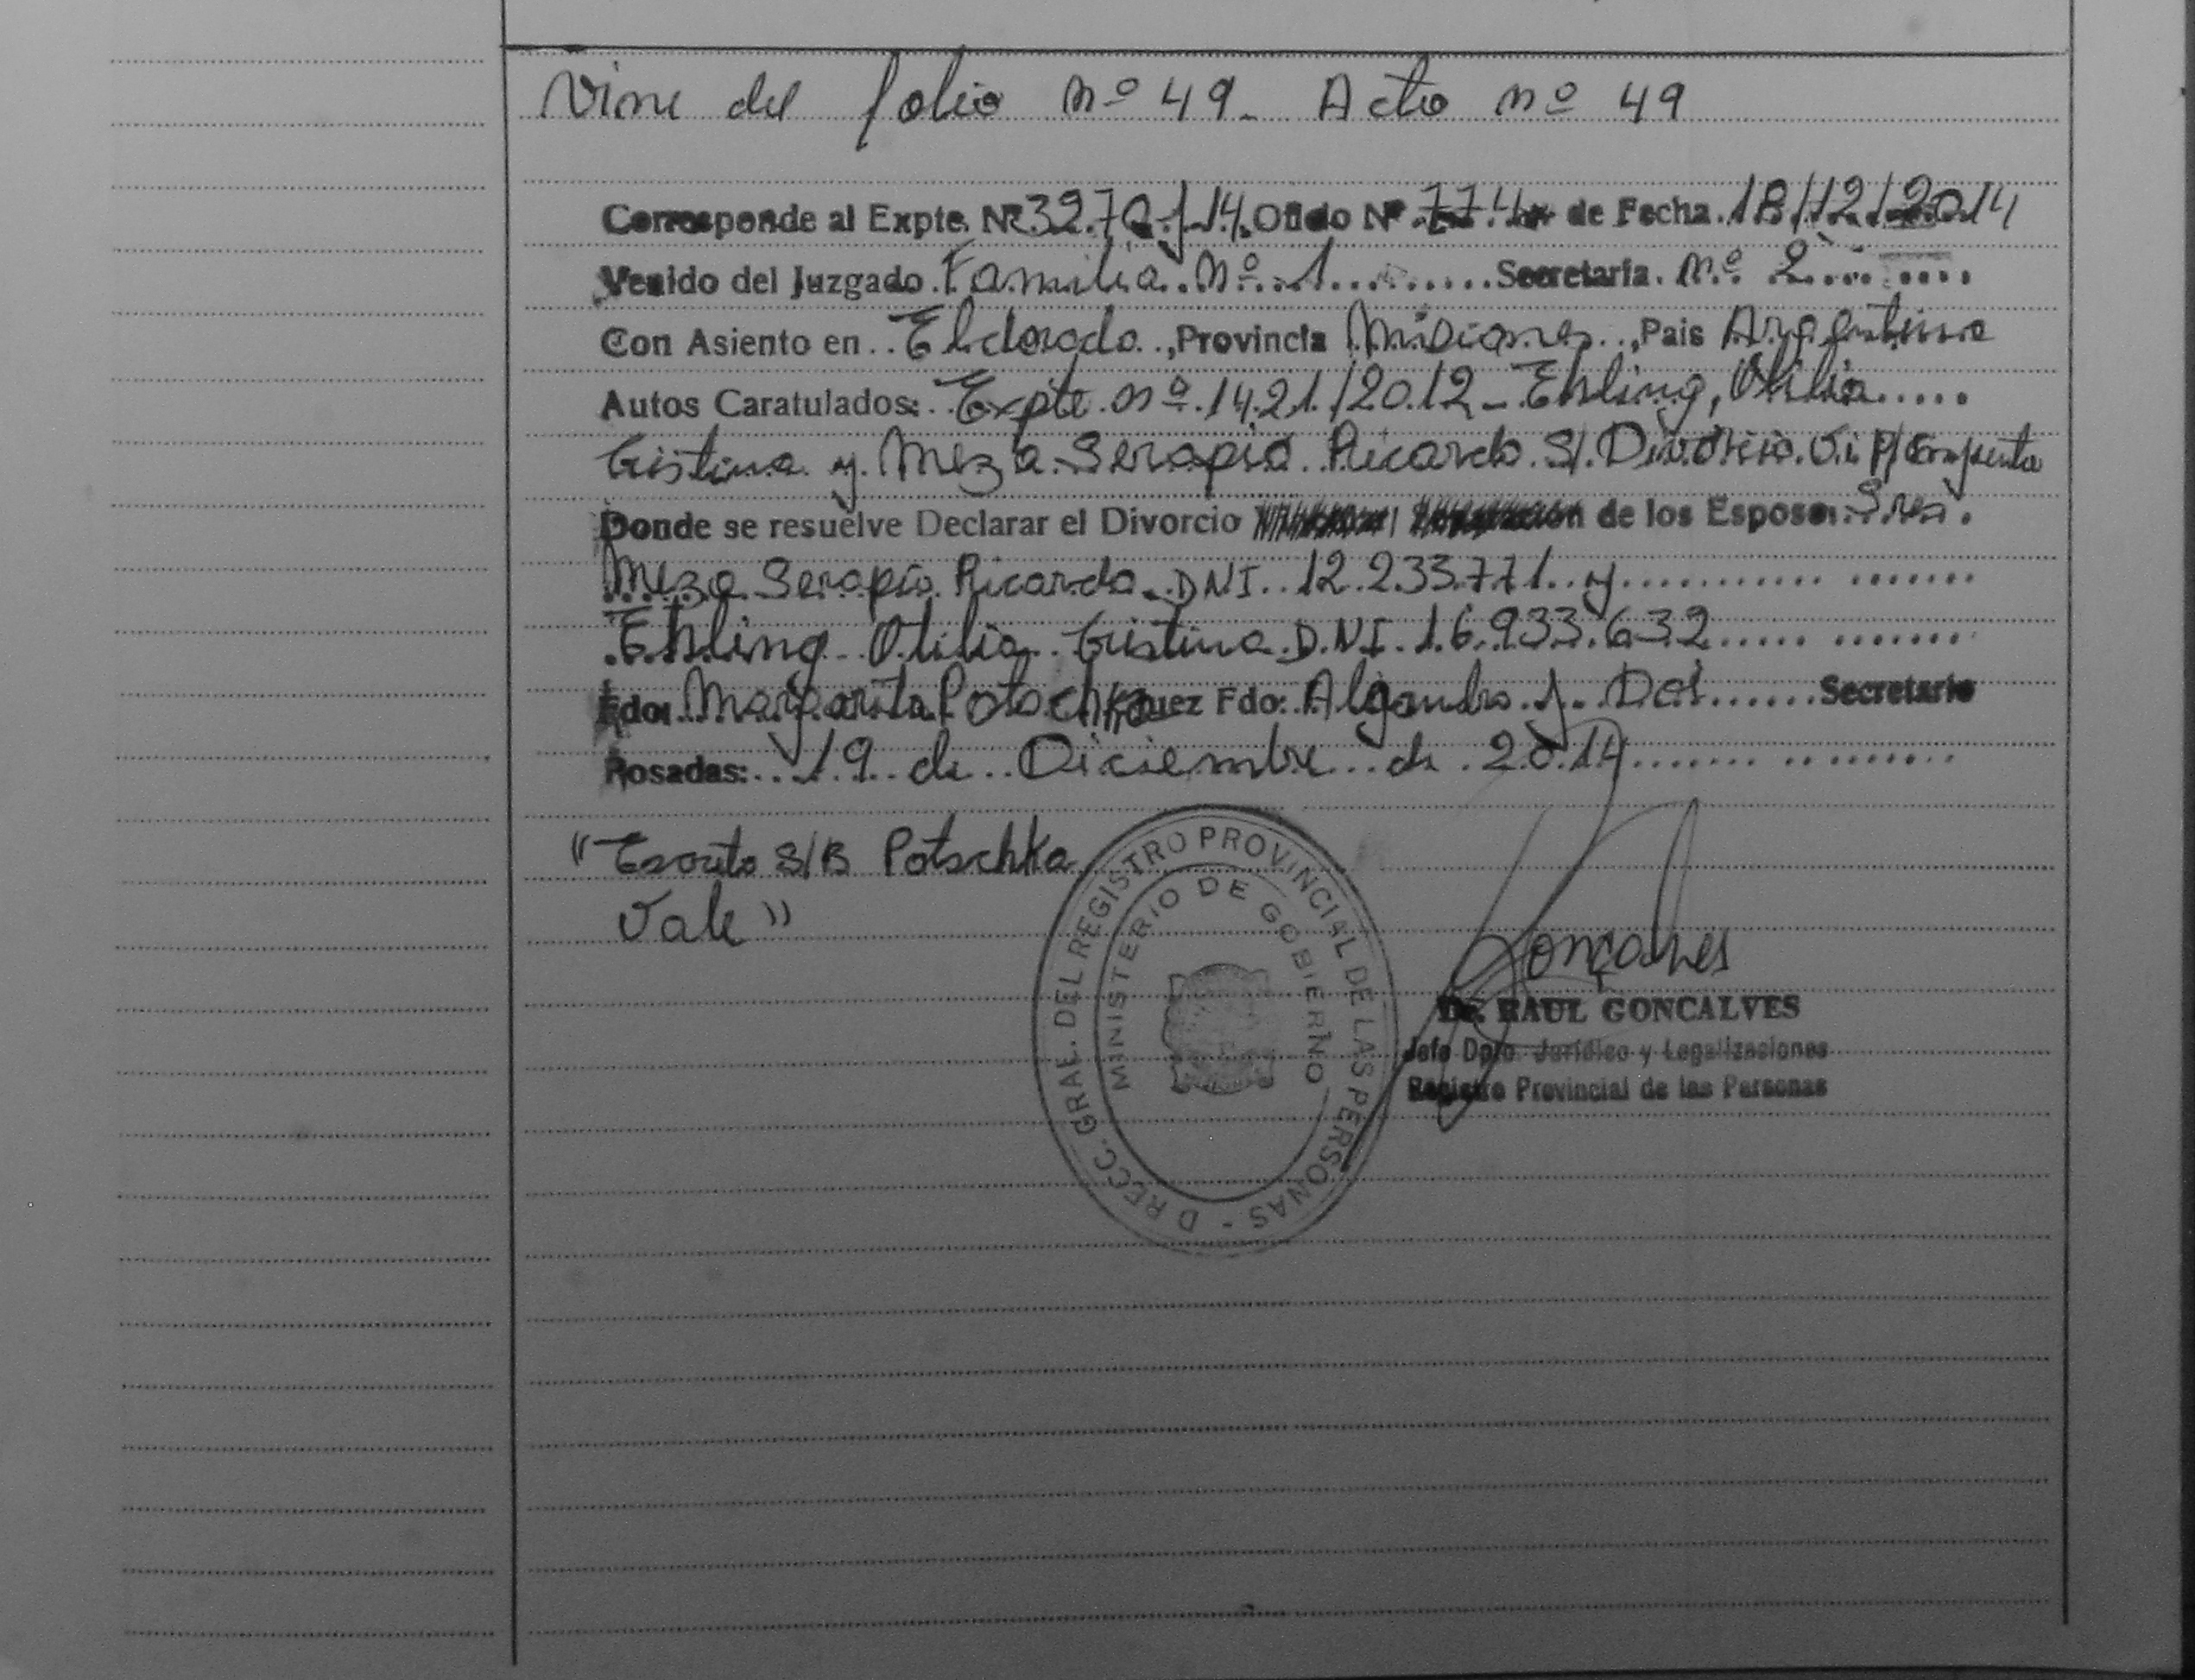 Viene del folio nº 49 - Acta nº 49
Corresponde al Expte. Nº 3270-J-14. Oficio Nº 774 de Fecha 18/12/2014
Venido del Juzgado Familia Nº 1 Secretaría nº 2
Con Asiento en Eldorado, Provincia Misiones, Pais Argentina
Autos Caratulados: Expte nº 1421/2012 - Ehling, Otilia
Cristina y Meza Serapio Ricardo S/ Divorcio V. P/
Donde se resuelve Declarar el Divorcio de los Esposos: Sres.
Meza Serapio Ricardo - DNI 12.233.771 y
Ehling Otilia Cristina D.N.I. 16.933.632
Fdo: Margarita Potschka Juez Fdo: Alejandro J. Dos Secretario
Posadas: 19 de Diciembre de 2014
"Escrito S/B Potschka
Vale"
DIRECC. GRAL. DEL REGISTRO PROVINCIAL DE LAS PERSONAS -
MINISTERIO DE GOBIERNO
Gonçalves
Dr. RAUL GONCALVES
Jefe Dpto. Jurídico y Legalizaciones
Registro Provincial de las Personas